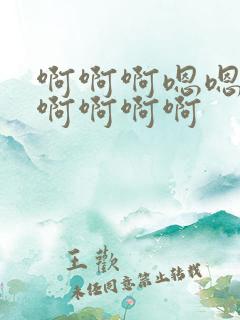 啊啊啊嗯嗯
啊啊啊啊
王歡
未经同意禁止转载